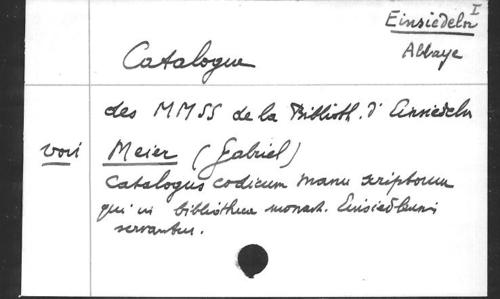 Einsiedeln I
Abbaye
Catalogue
des MMSS de la Biblioth. d'Einsiedeln
voir Meier (Gabriel)
Catalogus codicum manu scriptorum
qui in bibliotheca monast. Einsiedlensi
servantur.